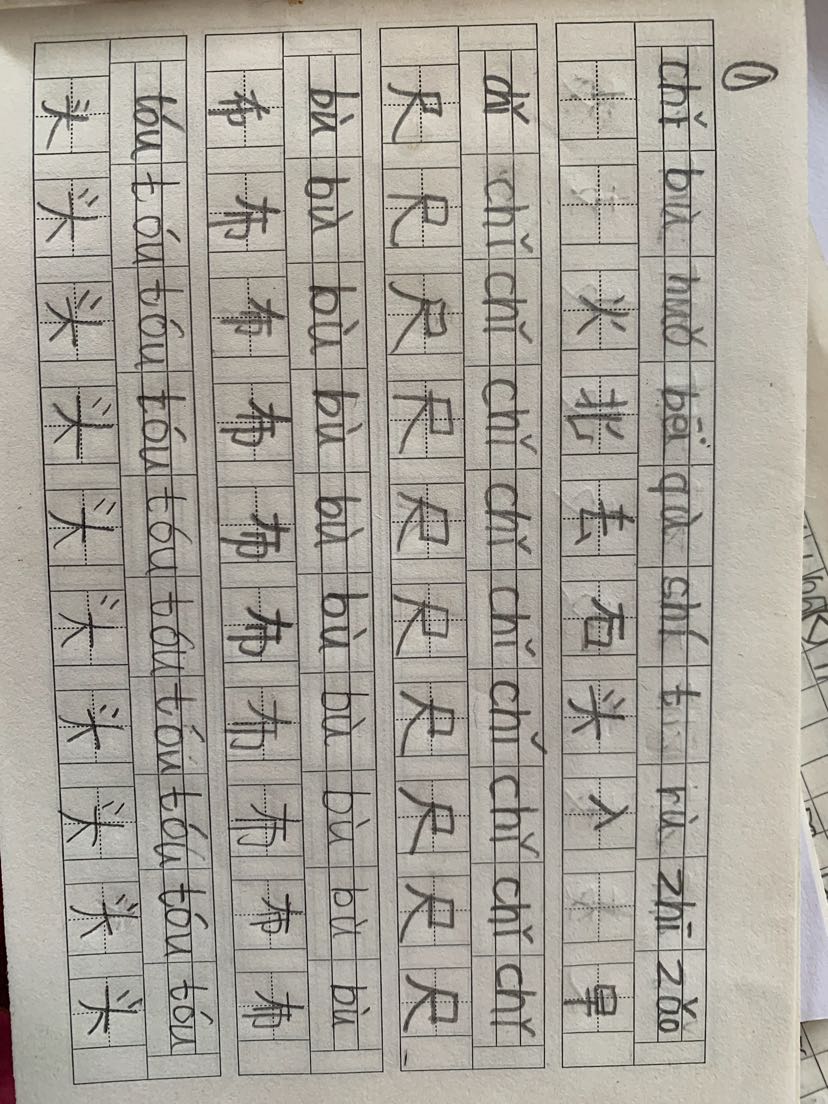 ①
chǐ bù huǒ bēi qù shí t rù zhī zǎo
火 北 去 石 头 入 早
chǐ chǐ chǐ chǐ chǐ chǐ chǐ chǐ chǐ
尺 尺 尺 尺 尺 尺 尺 尺 尺 尺
bù bù bù bù bù bù bù bù bù bù
布 布 布 布 布 布 布 布 布 布
tóu tóu tóu tóu tóu tóu tóu tóu tóu tóu
头 头 头 头 头 头 头 头 头 头